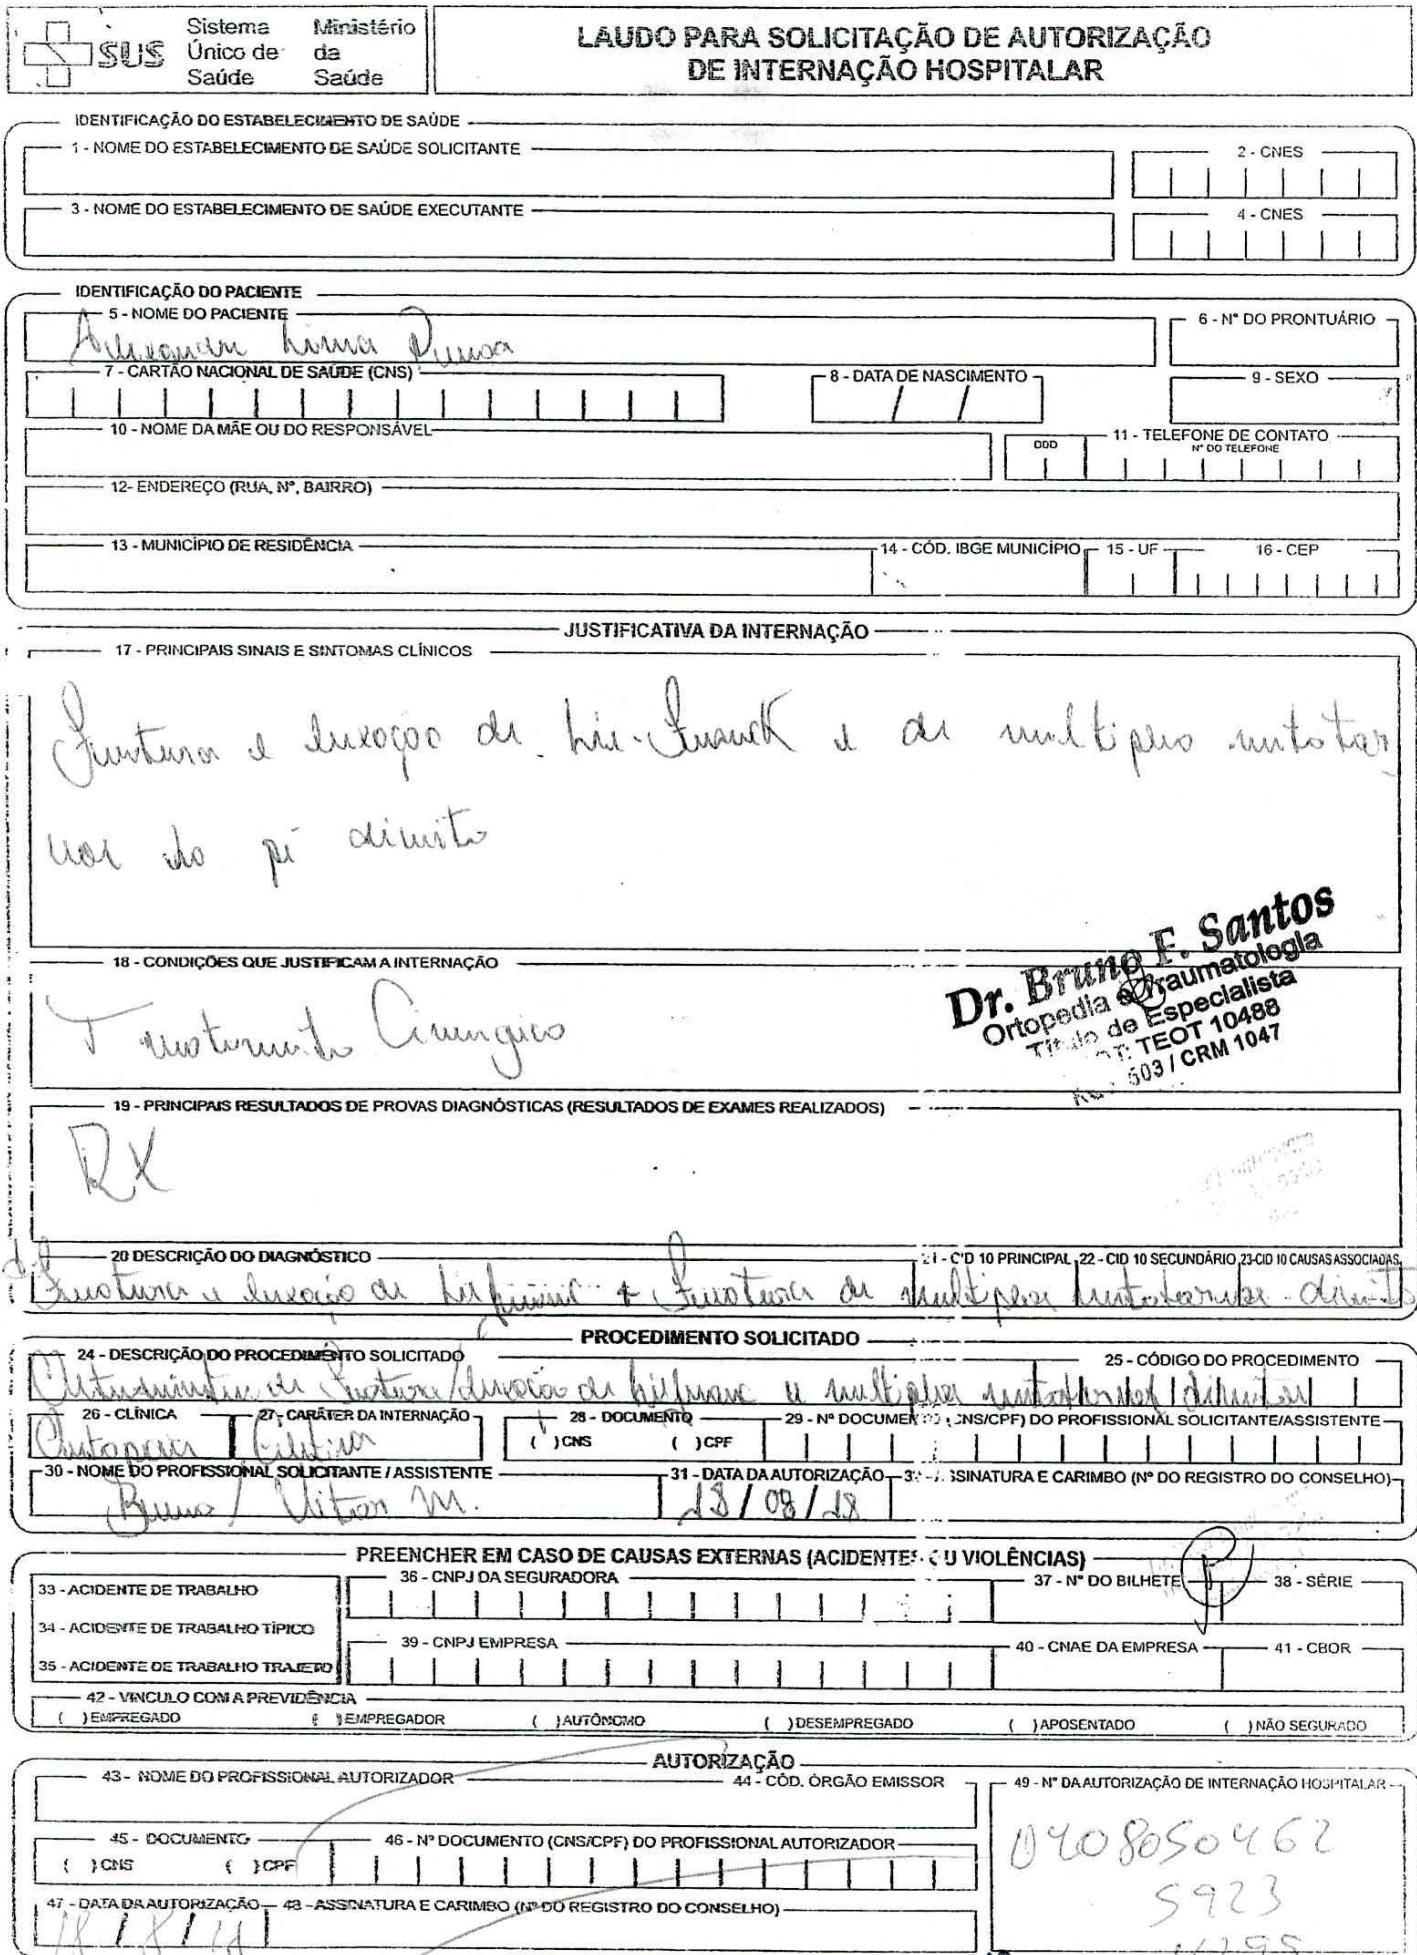 SUS
Sistema
Único de
Saúde
Ministério
da
Saúde
LAUDO PARA SOLICITAÇÃO DE AUTORIZAÇÃO
DE INTERNAÇÃO HOSPITALAR
IDENTIFICAÇÃO DO ESTABELECIMENTO DE SAÚDE
1 - NOME DO ESTABELECIMENTO DE SAÚDE SOLICITANTE
2 - CNES
3 - NOME DO ESTABELECIMENTO DE SAÚDE EXECUTANTE
4 - CNES
IDENTIFICAÇÃO DO PACIENTE
5 - NOME DO PACIENTE
6 - Nº DO PRONTUÁRIO
Lima
7 - CARTÃO NACIONAL DE SAÚDE (CNS)
8 - DATA DE NASCIMENTO
9 - SEXO
10 - NOME DA MÃE OU DO RESPONSÁVEL
11 - TELEFONE DE CONTATO
DDD
Nº DO TELEFONE
12- ENDEREÇO (RUA, Nº, BAIRRO)
13 - MUNICÍPIO DE RESIDÊNCIA
14 - CÓD. IBGE MUNICÍPIO
15 - UF
16 - CEP
JUSTIFICATIVA DA INTERNAÇÃO
17 - PRINCIPAIS SINAIS E SINTOMAS CLÍNICOS
Fratura e luxação de Lis-Franck e de multiplos metatar
do pé direito
Dr. Bruno F. Santos
Ortopedia e Traumatologia
Título de Especialista
TEOT 10488
503 / CRM 1047
18 - CONDIÇÕES QUE JUSTIFICAM A INTERNAÇÃO
Tratamento Cirurgico
19 - PRINCIPAIS RESULTADOS DE PROVAS DIAGNÓSTICAS (RESULTADOS DE EXAMES REALIZADOS)
RX
20 DESCRIÇÃO DO DIAGNÓSTICO
21 - CID 10 PRINCIPAL
22 - CID 10 SECUNDÁRIO
23-CID 10 CAUSAS ASSOCIADAS
Fratura e luxação de + Fratura de multiplos metatarsos direito
PROCEDIMENTO SOLICITADO
24 - DESCRIÇÃO DO PROCEDIMENTO SOLICITADO
25 - CÓDIGO DO PROCEDIMENTO
de Fratura/luxação de e multiplos
26 - CLÍNICA
27 - CARÁTER DA INTERNAÇÃO
28 - DOCUMENTO
29 - Nº DOCUMENTO (CNS/CPF) DO PROFISSIONAL SOLICITANTE/ASSISTENTE
Eletiva
( ) CNS
( ) CPF
30 - NOME DO PROFISSIONAL SOLICITANTE / ASSISTENTE
31 - DATA DA AUTORIZAÇÃO
32 - ASSINATURA E CARIMBO (Nº DO REGISTRO DO CONSELHO)
Bruno / Vitor M.
18/08/18
PREENCHER EM CASO DE CAUSAS EXTERNAS (ACIDENTES OU VIOLÊNCIAS)
33 - ACIDENTE DE TRABALHO
36 - CNPJ DA SEGURADORA
37 - Nº DO BILHETE
38 - SÉRIE
34 - ACIDENTE DE TRABALHO TÍPICO
39 - CNPJ EMPRESA
40 - CNAE DA EMPRESA
41 - CBOR
35 - ACIDENTE DE TRABALHO TRAJETO
42 - VINCULO COM A PREVIDÊNCIA
( ) EMPREGADO
( ) EMPREGADOR
( ) AUTÔNOMO
( ) DESEMPREGADO
( ) APOSENTADO
( ) NÃO SEGURADO
AUTORIZAÇÃO
43 - NOME DO PROFISSIONAL AUTORIZADOR
44 - CÓD. ÓRGÃO EMISSOR
49 - Nº DA AUTORIZAÇÃO DE INTERNAÇÃO HOSPITALAR
0408050462
5923
45 - DOCUMENTO
46 - Nº DOCUMENTO (CNS/CPF) DO PROFISSIONAL AUTORIZADOR
( ) CNS
( ) CPF
47 - DATA DA AUTORIZAÇÃO
48 - ASSINATURA E CARIMBO (Nº DO REGISTRO DO CONSELHO)